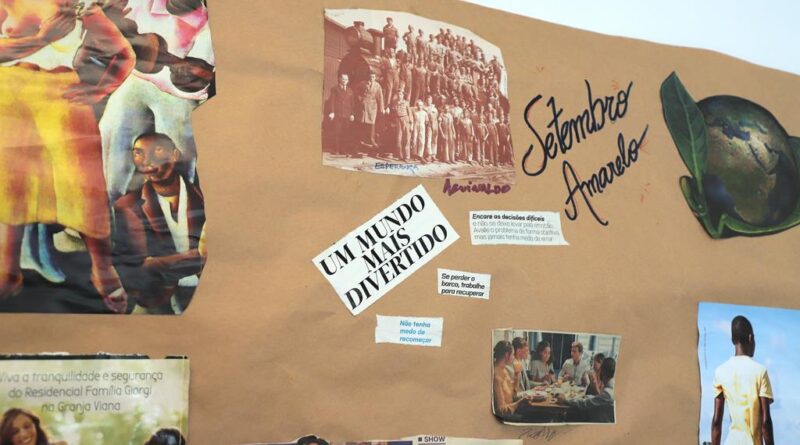 ESPERANÇA
Setembro
Amarelo
UM MUNDO
MAIS
DIVERTIDO
Encare as decisões difíceis
e não se deixe levar pela emoção.
Avalie o problema de forma objetiva,
mas jamais tenha medo de errar
Se perder o
barco, trabalhe
para recuperar
Não tenha
medo de
recomeçar
Viva a tranquilidade e segurança
do Residencial Família Giorgi
na Granja Viana
SHOW